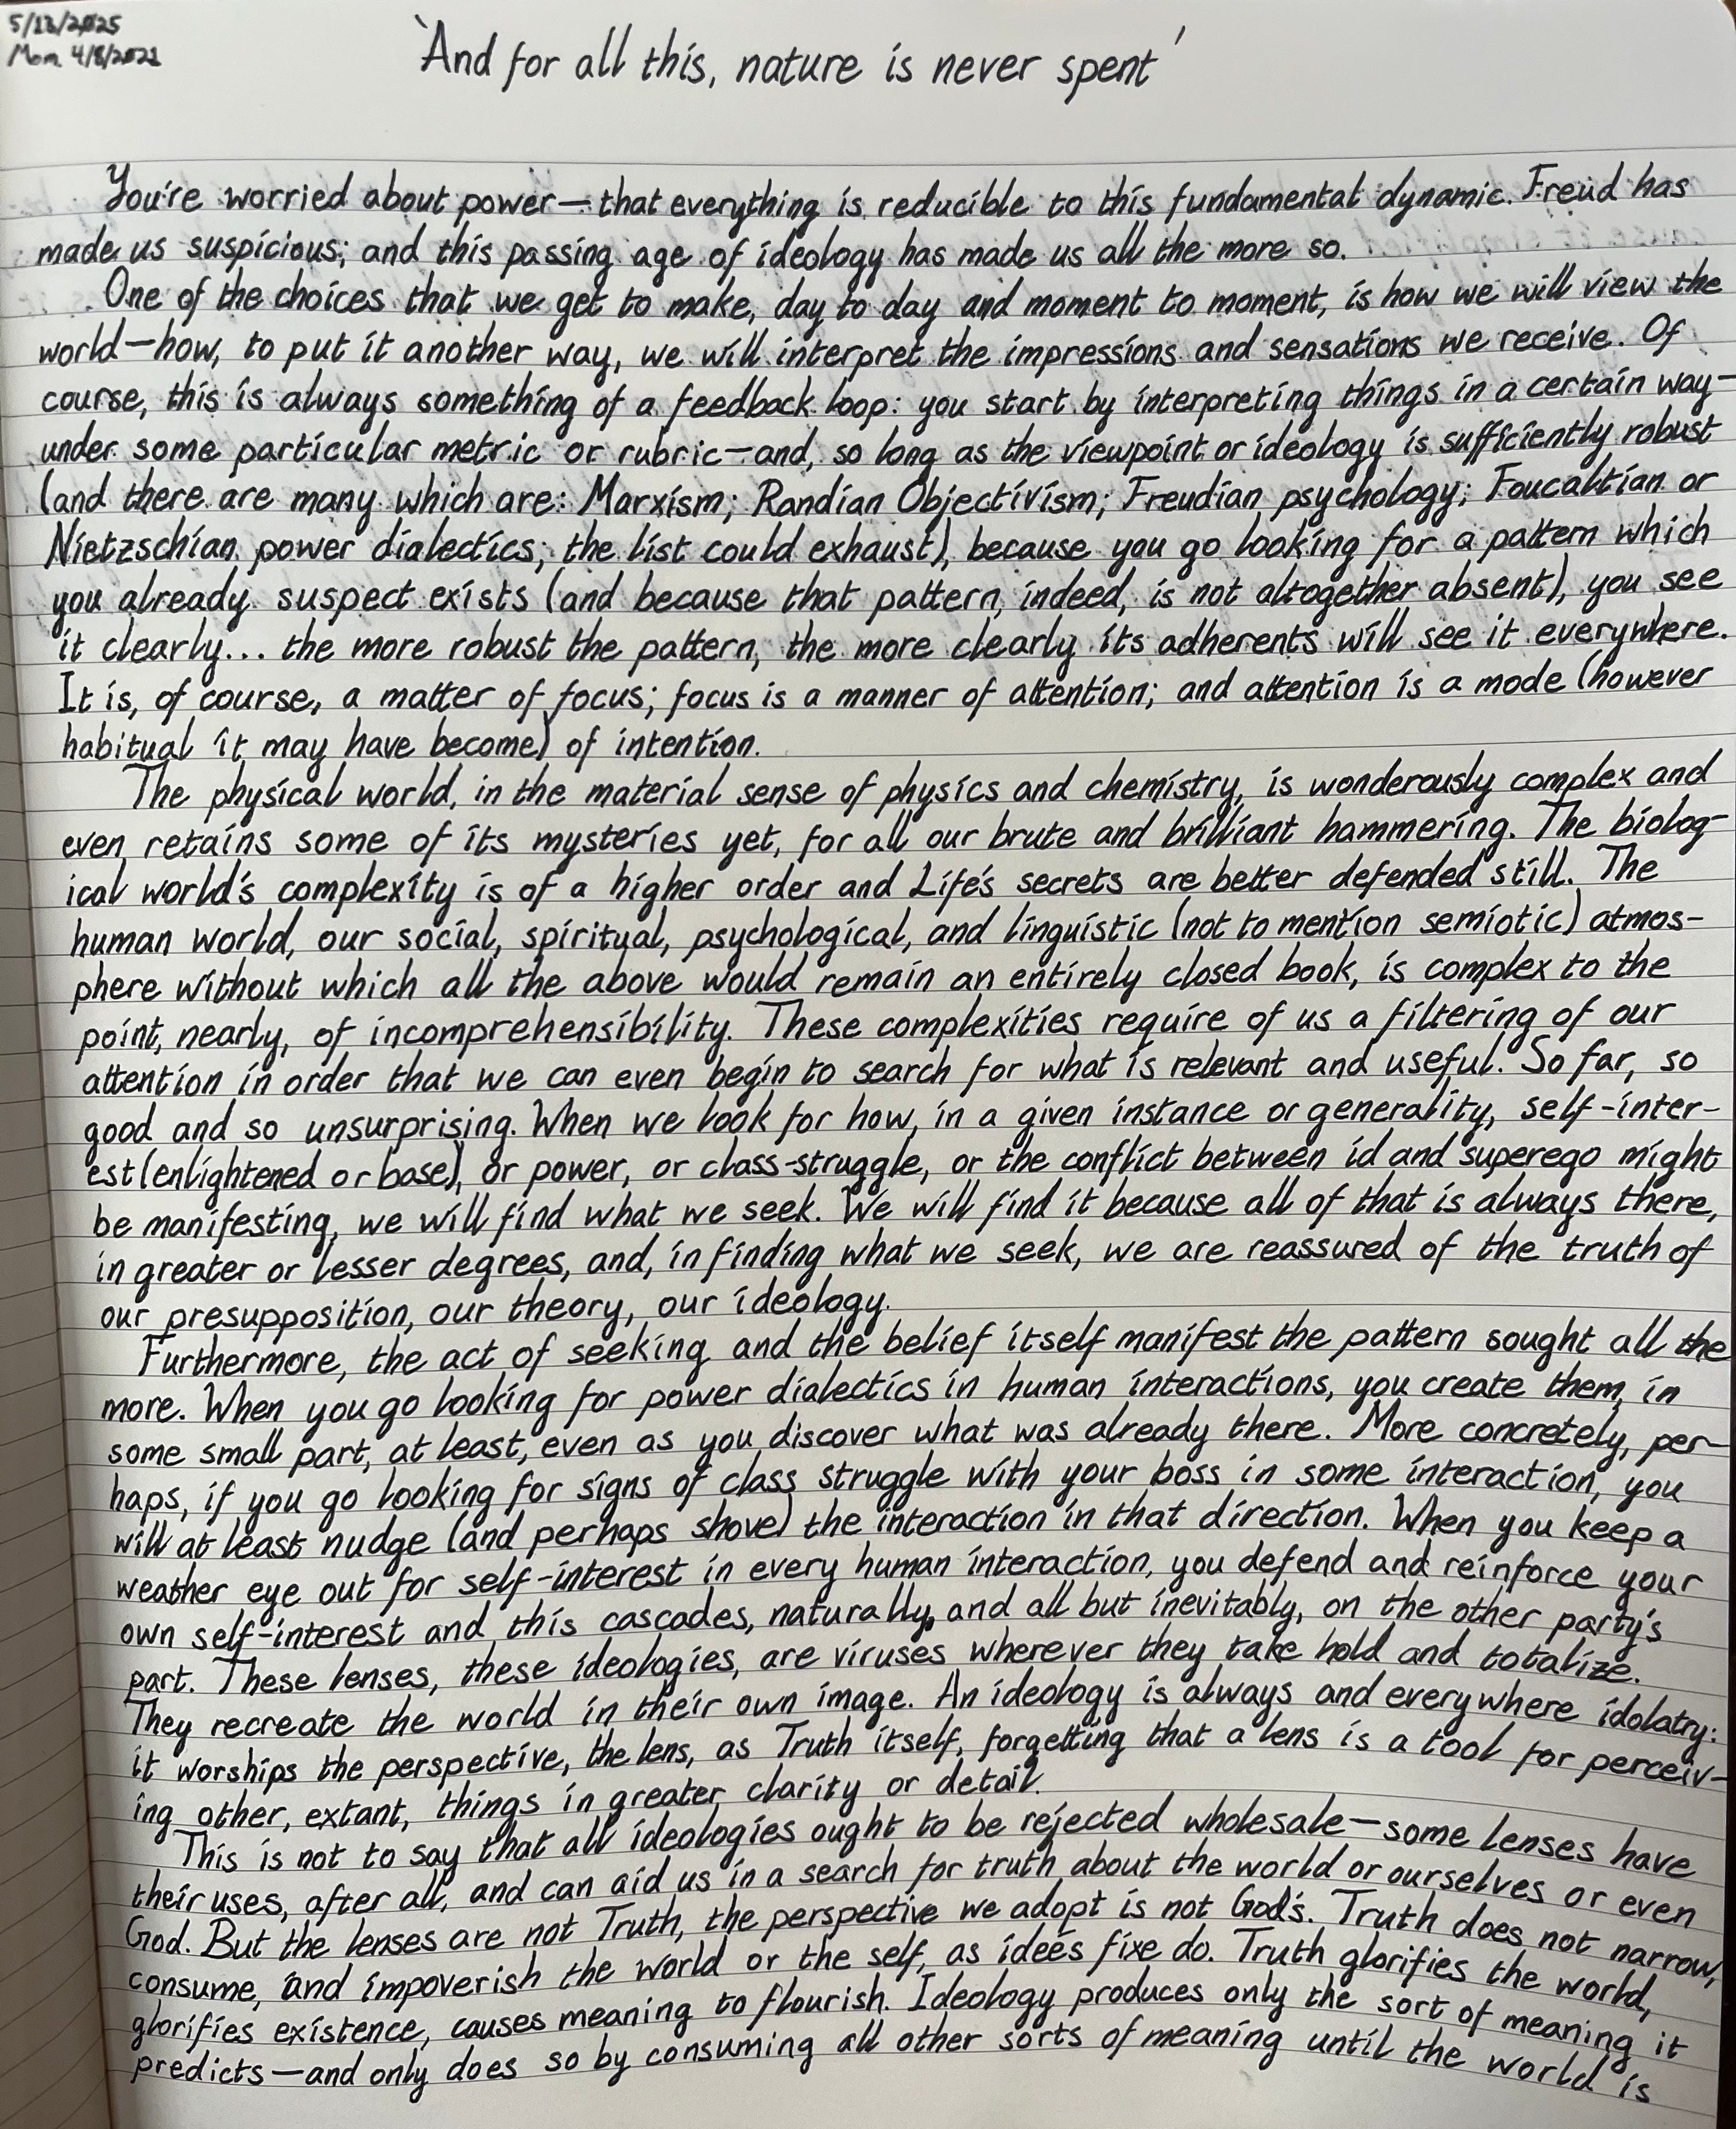 5/13/2025
Mon 4/8/2021
'And for all this, nature is never spent'
You're worried about power—that everything is reducible to this fundamental dynamic. Freud has
made us suspicious; and this passing age of ideology has made us all the more so.
One of the choices that we get to make, day to day and moment to moment, is how we will view the
world—how, to put it another way, we will interpret the impressions and sensations we receive. Of
course, this is always something of a feedback loop: you start by interpreting things in a certain way—
under some particular metric or rubric—and, so long as the viewpoint or ideology is sufficiently robust
(and there are many which are: Marxism; Randian Objectivism; Freudian psychology; Foucaltian or
Nietzschian power dialectics; the list could exhaust), because you go looking for a pattern which
you already suspect exists (and because that pattern, indeed, is not altogether absent), you see
it clearly... the more robust the pattern, the more clearly its adherents will see it everywhere.
It is, of course, a matter of focus; focus is a manner of attention; and attention is a mode (however
habitual it may have become) of intention.
The physical world, in the material sense of physics and chemistry, is wonderously complex and
even retains some of its mysteries yet, for all our brute and brilliant hammering. The biolog-
ical world's complexity is of a higher order and Life's secrets are better defended still. The
human world, our social, spiritual, psychological, and linguistic (not to mention semiotic) atmos-
phere without which all the above would remain an entirely closed book, is complex to the
point, nearly, of incomprehensibility. These complexities require of us a filtering of our
attention in order that we can even begin to search for what is relevant and useful. So far, so
good and so unsurprising. When we look for how, in a given instance or generality, self-inter-
est (enlightened or base), or power, or class-struggle, or the conflict between id and superego might
be manifesting, we will find what we seek. We will find it because all of that is always there,
in greater or lesser degrees, and, in finding what we seek, we are reassured of the truth of
our presupposition, our theory, our ideology.
Furthermore, the act of seeking and the belief itself manifest the pattern sought all the
more. When you go looking for power dialectics in human interactions, you create them, in
some small part, at least, even as you discover what was already there. More concretely, per-
haps, if you go looking for signs of class struggle with your boss in some interaction, you
will at least nudge (and perhaps shove) the interaction in that direction. When you keep a
weather eye out for self-interest in every human interaction, you defend and reinforce your
own self-interest and this cascades, naturally, and all but inevitably, on the other party's
part. These lenses, these ideologies, are viruses wherever they take hold and totalize.
They recreate the world in their own image. An ideology is always and everywhere idolatry:
it worships the perspective, the lens, as Truth itself, forgetting that a lens is a tool for perceiv-
ing other, extant, things in greater clarity or detail.
This is not to say that all ideologies ought to be rejected wholesale—some lenses have
their uses, after all, and can aid us in a search for truth about the world or ourselves or even
God. But the lenses are not Truth, the perspective we adopt is not God's. Truth does not narrow,
consume, and impoverish the world or the self, as ideés fixe do. Truth glorifies the world,
glorifies existence, causes meaning to flourish. Ideology produces only the sort of meaning it
predicts—and only does so by consuming all other sorts of meaning until the world is